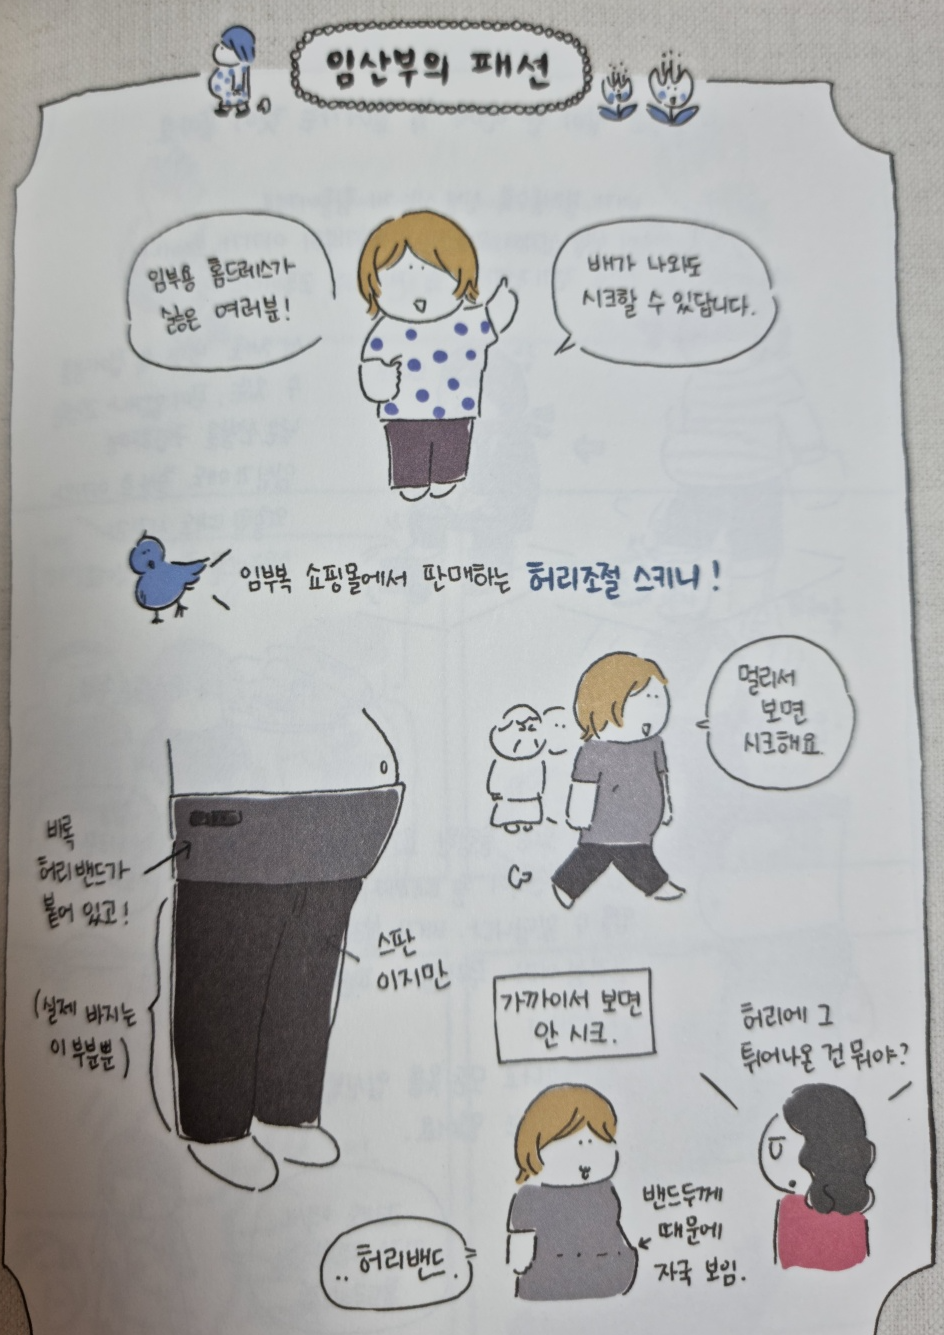 임산부의 패션
임부용 홈드레스가
싫은 여러분!
배가 나와도
시크할 수 있답니다.
임부복 쇼핑몰에서 판매하는 허리조절 스키니!
멀리서
보면
시크해요.
비록
허리밴드가
붙어 있고!
(실제 바지는
이 부분뿐)
스판
이지만
가까이서 보면
안 시크.
허리에 그
튀어나온 건 뭐야?
밴드두께
때문에
자국 보임.
..허리밴드.